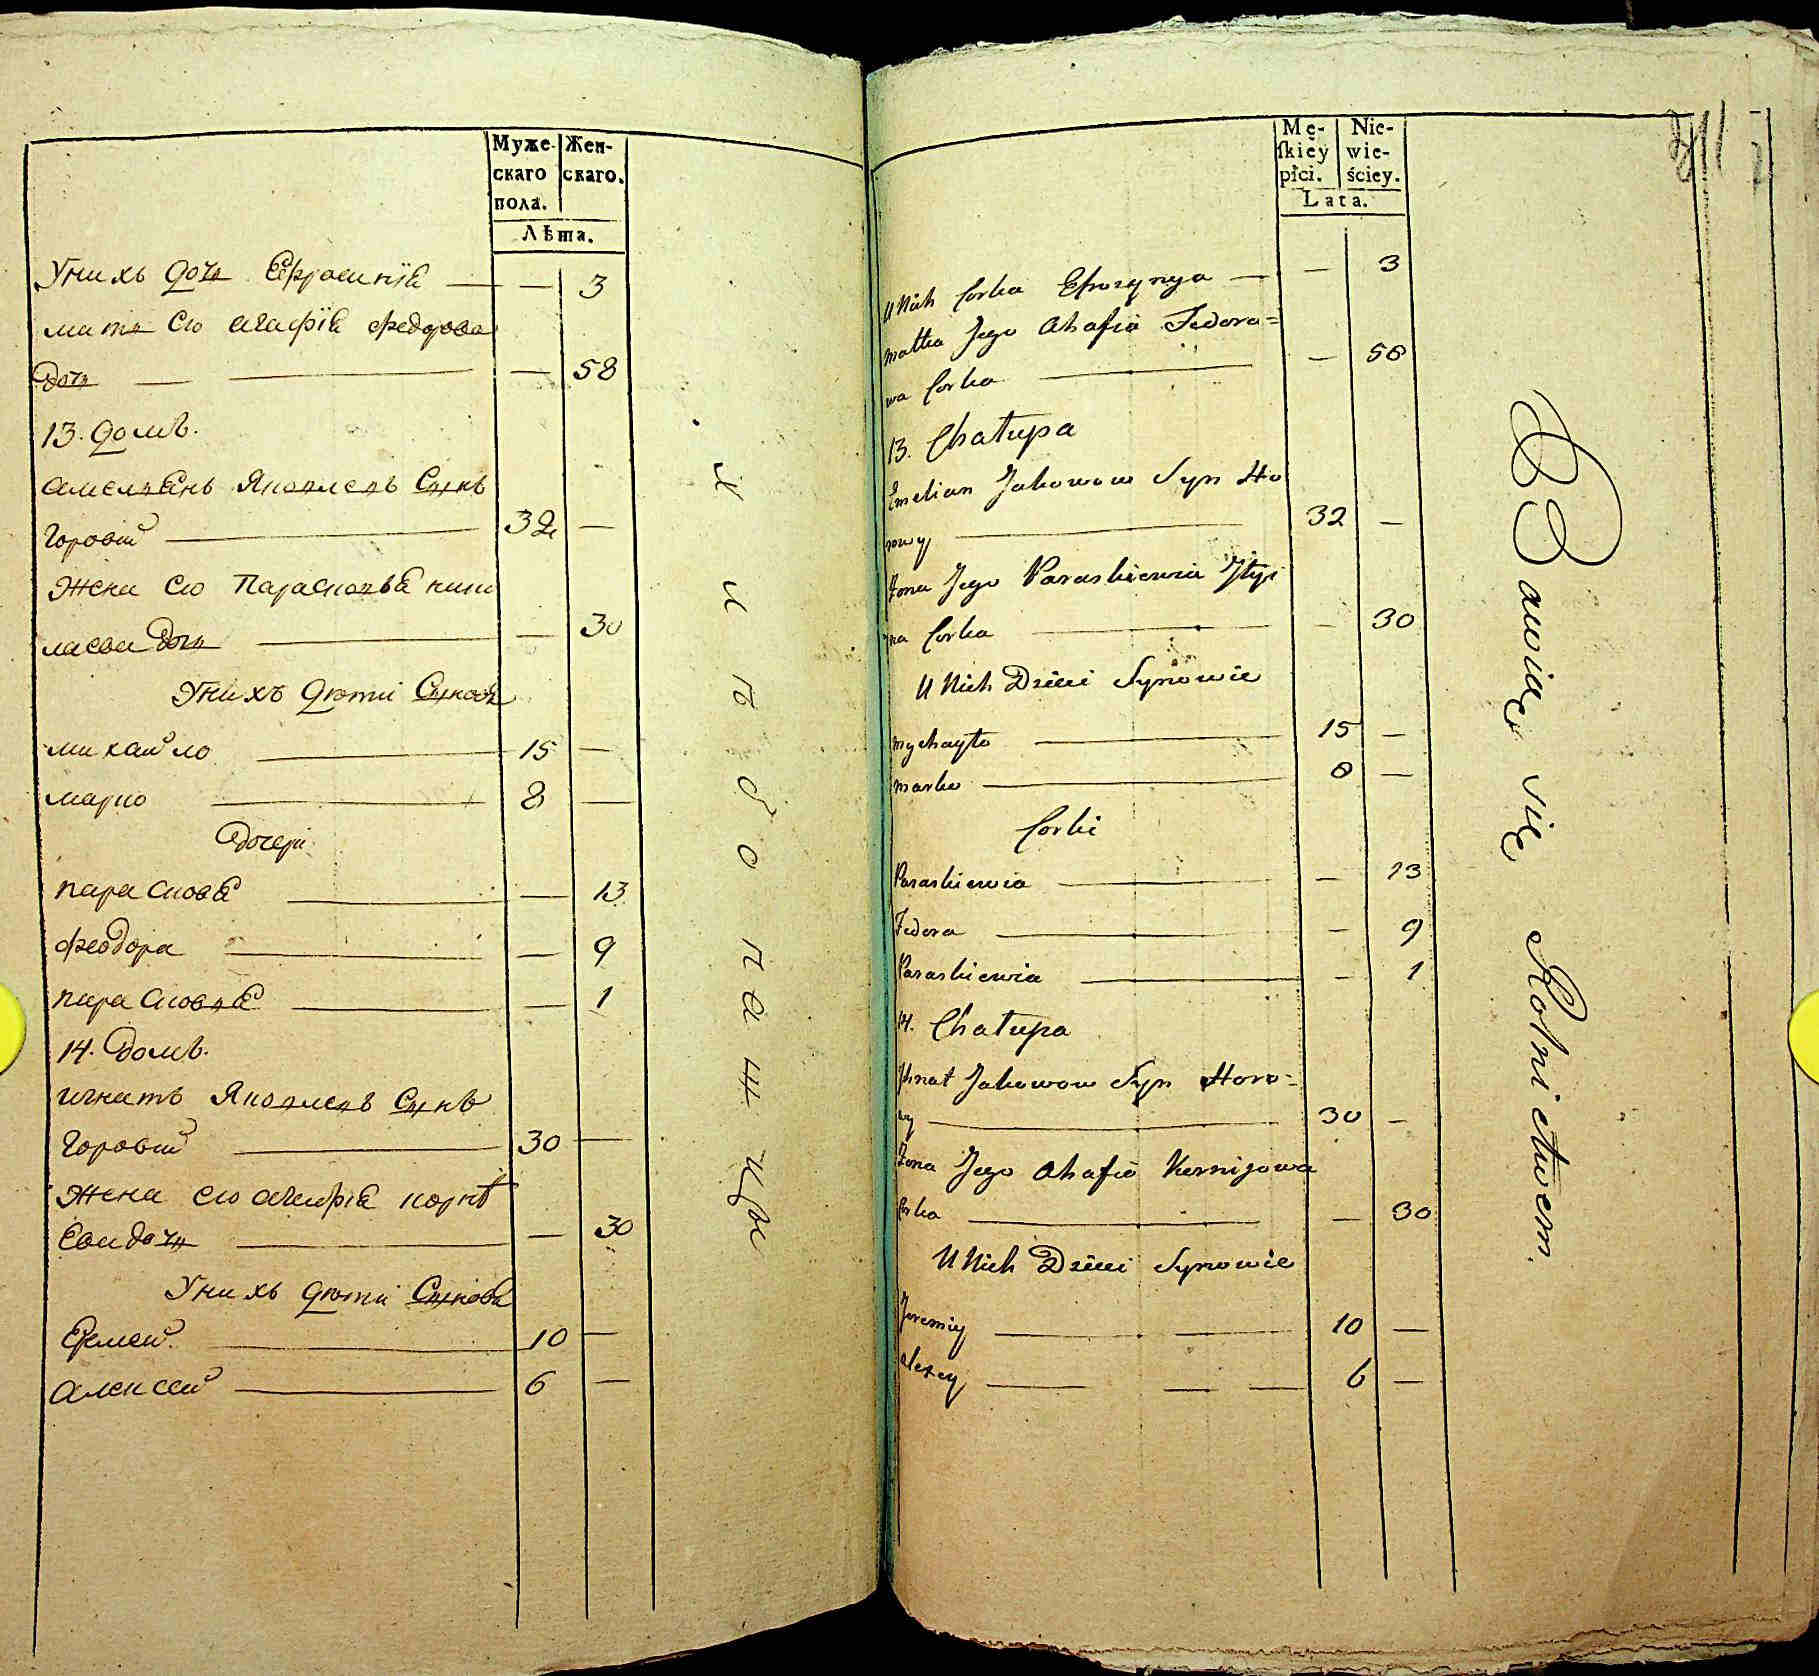 Муже- Жен-
скаго скаго.
пола.
Лѣта.
Унихъ дочь Ефросинїя — — 3
мать его агафїя федорова
дочь — — — 58
13. домъ.
амелѣянъ Яковлевъ Сынъ
горовый — 32 —
Жена его Парасковья
дочь — — 30
Унихъ дѣти Сыновья
михайло — 15 —
марко — 8 —
дочери
парасковья — — 13
феодора — — 9
парасковья — — 1
14. домъ.
игнатъ Яковлевъ Сынъ
горовый — 30 —
Жена его агафія корнѣ
ева дочь — — 30
Унихъ дѣти Сыновья
Еремей — 10 —
алексей — 6 —
хлѣбопашцы
Mę- Nie-
ſkiey wie-
płci. ściey.
Lata.
U Nich Corka Efrozynya — — 3
matka Jego Ahafia Fedoro=
wa Corka — — 58
13. Chałupa
Emelian Jakowow Syn Ho
rowy — 32 —
Żona Jego Paraskiewia
na Corka — — 30
U Nich Dzieci Synowie
mychayło — 15 —
marko — 8 —
Corki
Paraskiewia — — 13
Fedora — — 9
Paraskiewia — — 1
14. Chałupa
Jhnat Jakowow Syn Horo=
wy — 30 —
Żona Jego Ahafia Kernijowa
Corka — — 30
U Nich Dzieci Synowie
Jeremiy — 10 —
alexey — 6 —
Bawiący się Rolnictwem.